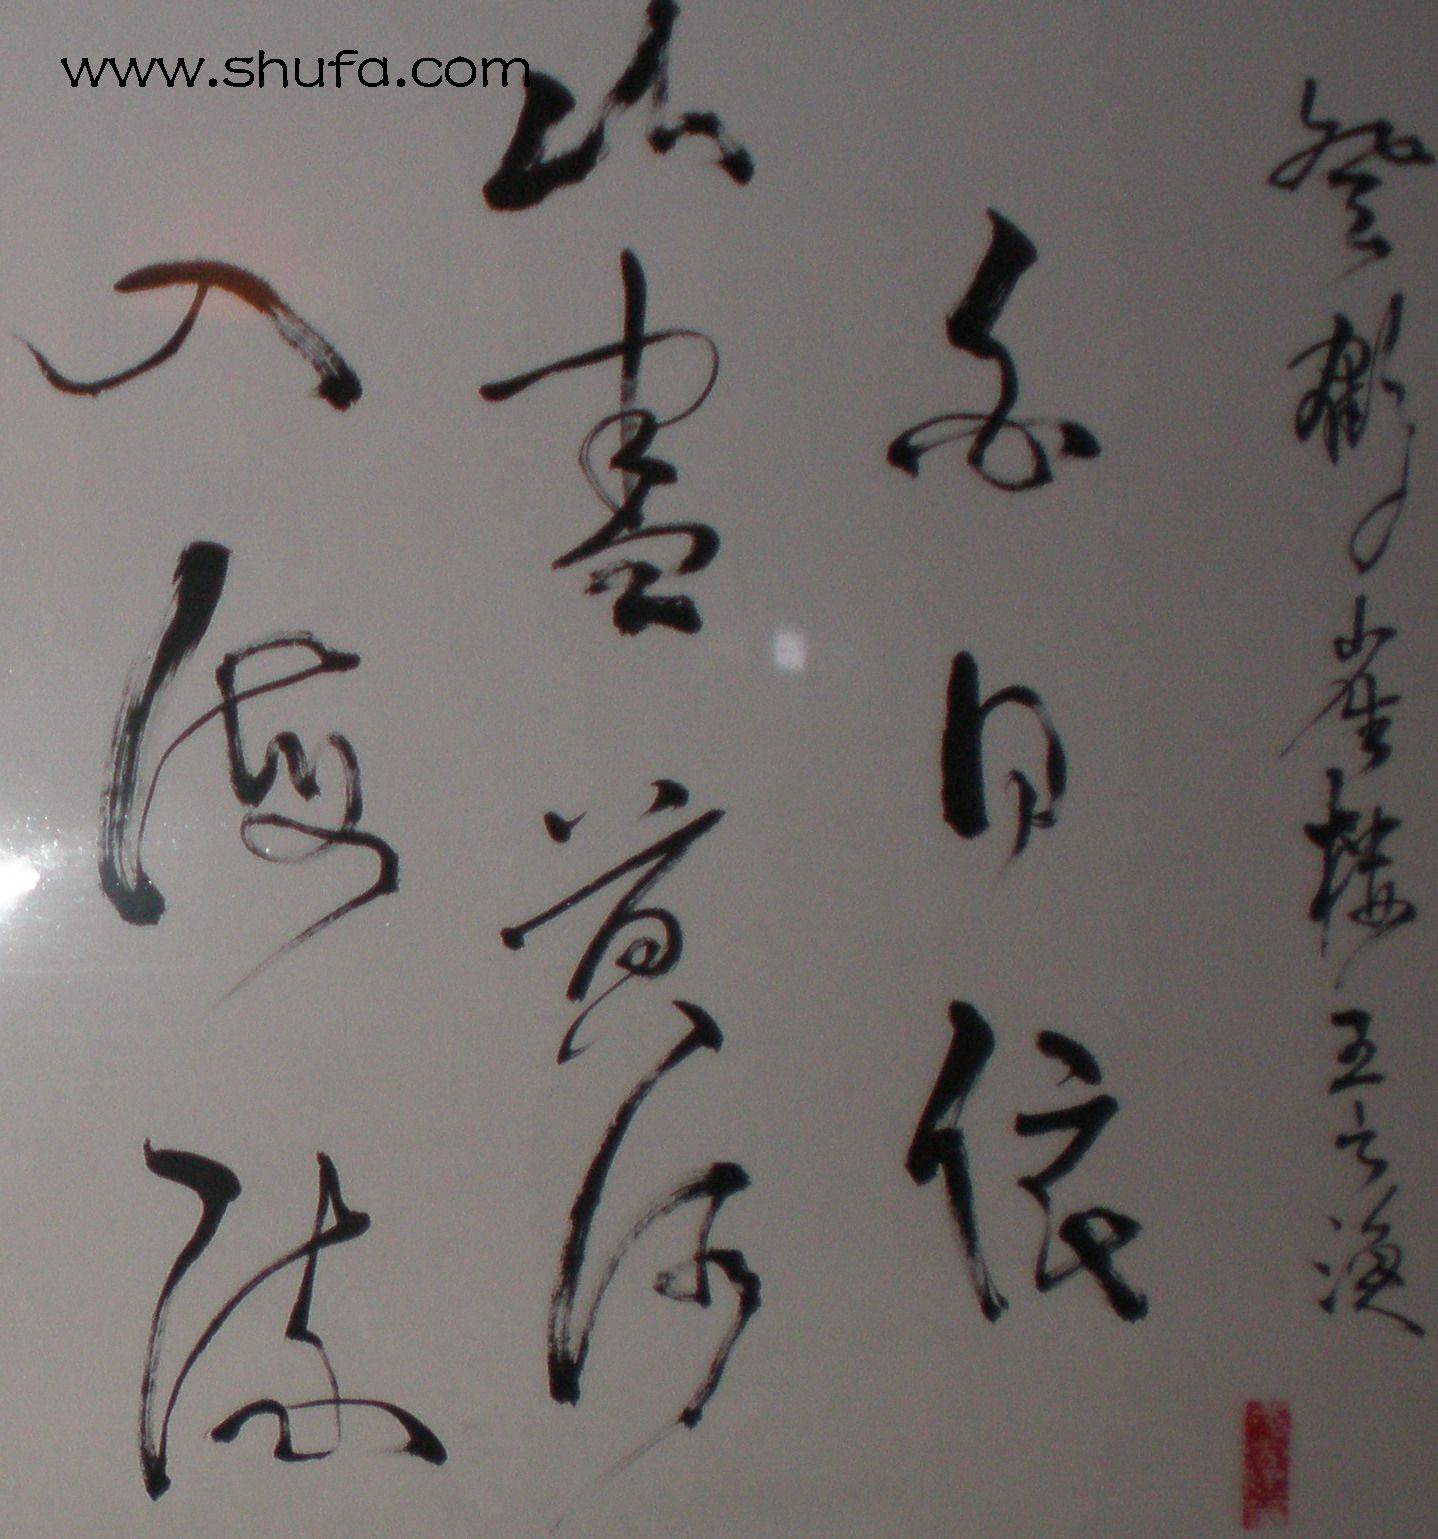 www.shufa.com
登鹳雀楼王之涣
白日依
山盡黄河
入海流